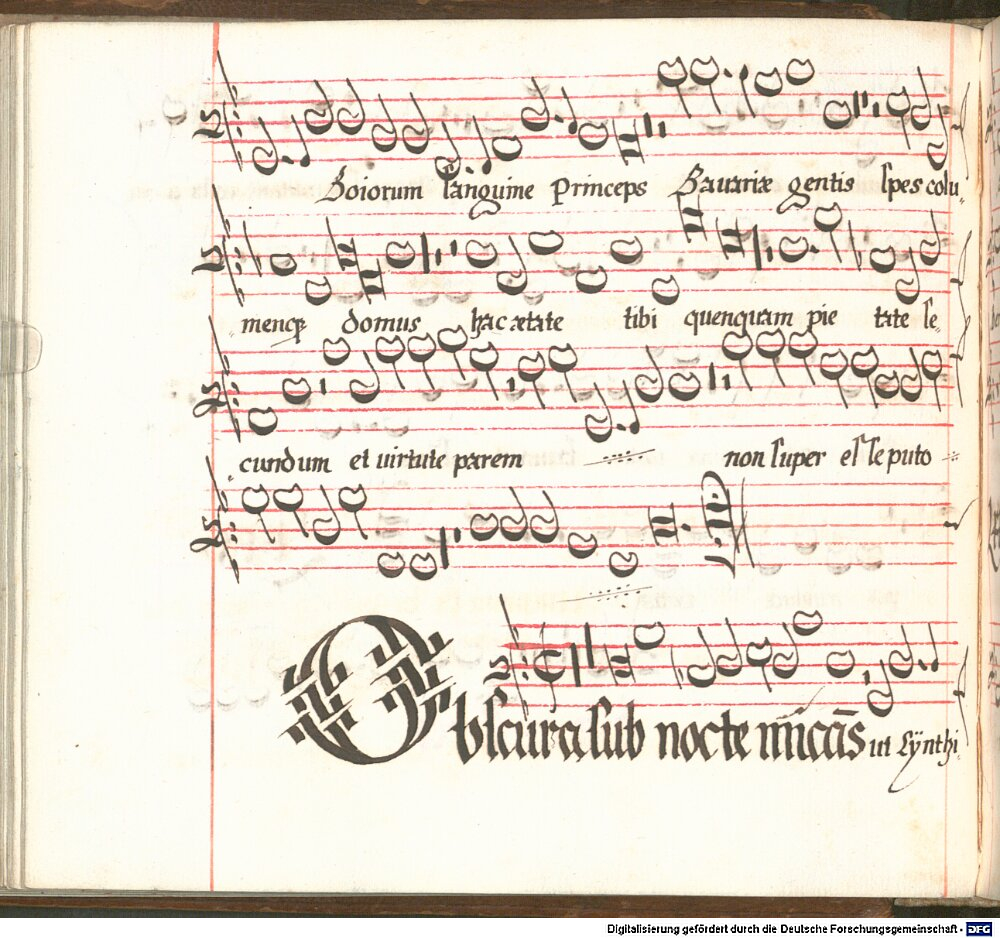 Boiorum sanguine Princeps Bauariæ gentis spes colu„
menq₃ domus hac ætate tibi quenquam pie tate se„
cundum et uirtute parem non super esse puto
Obscura sub nocte micās ut Cÿnthi
Digitalisierung gefördert durch die Deutsche Forschungsgemeinschaft - DFG